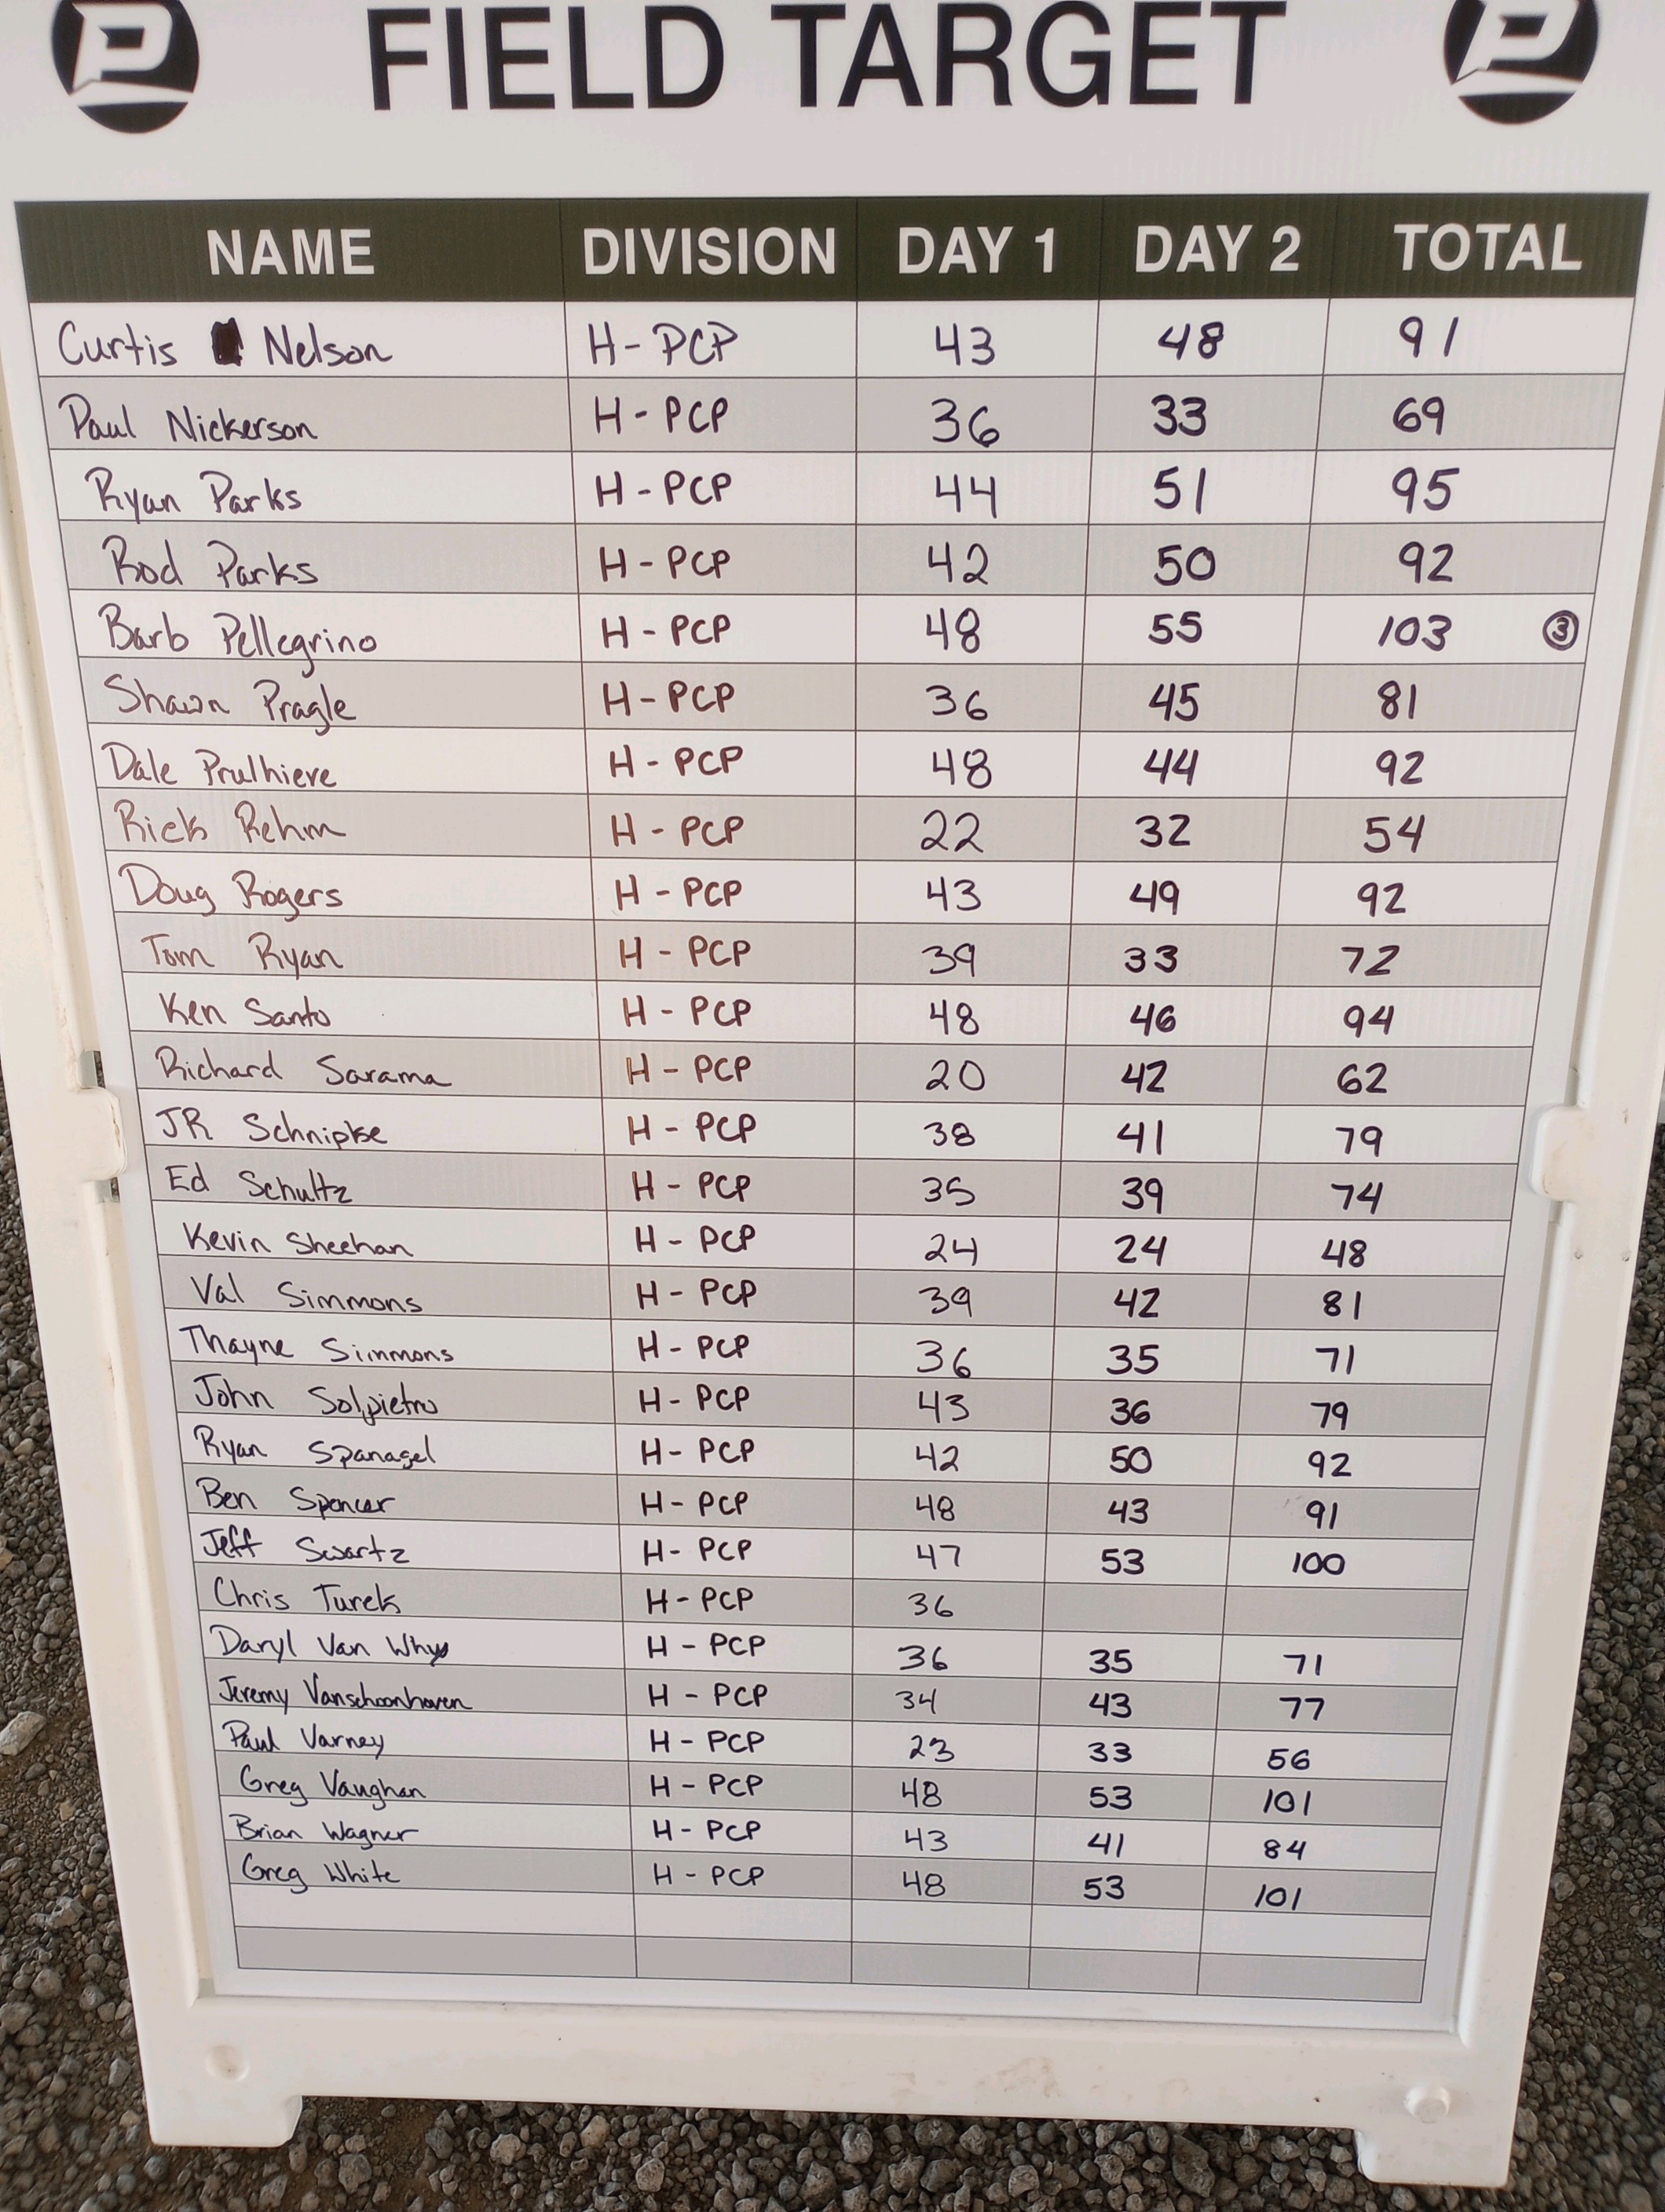 FIELD TARGET
NAME DIVISION DAY 1 DAY 2 TOTAL
Curtis Nelson H-PCP 43 48 91
Paul Nickerson H-PCP 36 33 69
Ryan Parks H-PCP 44 51 95
Rod Parks H-PCP 42 50 92
Barb Pellegrino H-PCP 48 55 103 ③
Shawn Pragle H-PCP 36 45 81
Dale Prulhiere H-PCP 48 44 92
Rick Rehm H-PCP 22 32 54
Doug Rogers H-PCP 43 49 92
Tom Ryan H-PCP 39 33 72
Ken Santo H-PCP 48 46 94
Richard Sarama H-PCP 20 42 62
JR Schnipke H-PCP 38 41 79
Ed Schultz H-PCP 35 39 74
Kevin Sheehan H-PCP 24 24 48
Val Simmons H-PCP 39 42 81
Thayne Simmons H-PCP 36 35 71
John Solpietro H-PCP 43 36 79
Ryan Spanagel H-PCP 42 50 92
Ben Spencer H-PCP 48 43 91
Jeff Swartz H-PCP 47 53 100
Chris Turek H-PCP 36
Daryl Van Whys H-PCP 36 35 71
Jeremy Vanschoonhoven H-PCP 34 43 77
Paul Varney H-PCP 23 33 56
Greg Vaughan H-PCP 48 53 101
Brian Wagner H-PCP 43 41 84
Greg White H-PCP 48 53 101